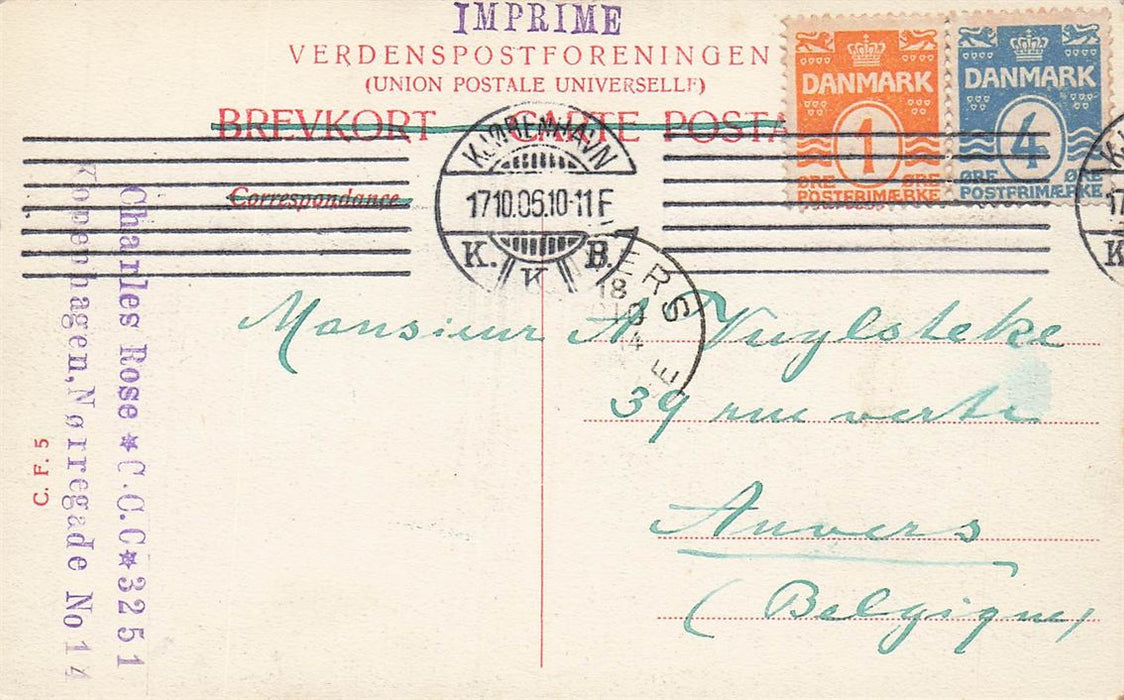 IMPRIME
VERDENSPOSTFORENINGEN
(UNION POSTALE UNIVERSELLE)
BREVKORT - CARTE POSTA
Correspondance
DANMARK
1
ØRE ØRE
POSTFRIMÆRKE
DANMARK
4
ØRE ØRE
POSTFRIMÆRKE
KJØBENHAVN
17.10.06.10-11 F
K. K B.
ERS
18
4
E
KJ
17
K
Monsieur A Vuylsteke
39 rue verte
Anvers
(Belgique)
Charles Rose * C.C.C * 3251
Kopenhagen, Nørregade No 14
C. F. 5